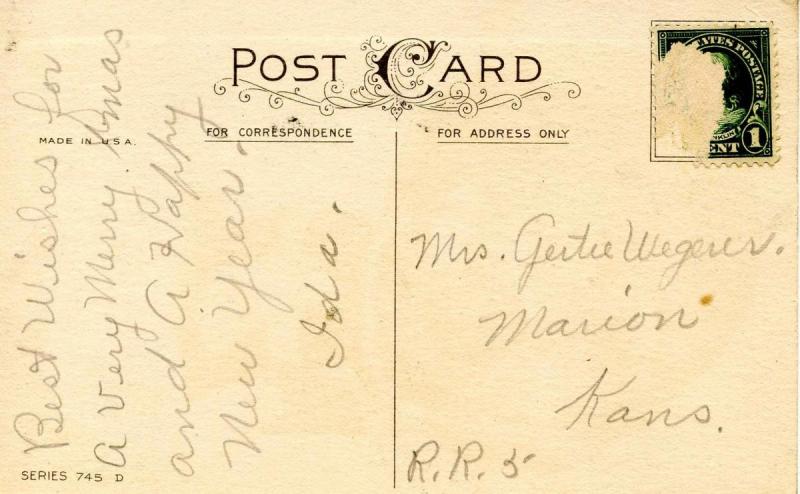 POST CARD
FOR CORRESPONDENCE
FOR ADDRESS ONLY
MADE IN U.S.A.
Best Wishes for
A Very Merry Xmas
and A Happy
New Year.
Ida.
SERIES 745 D
ATES POSTAGE
KLIN
1
ENT
Mrs. Gertie Wegerer.
Marion
Kans.
R.R. 5